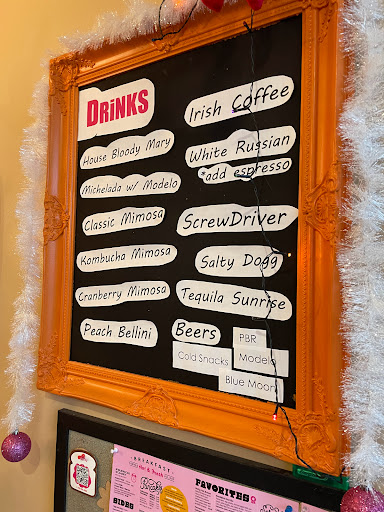 DRiNKS
House Bloody Mary
Michelada w/ Modelo
Classic Mimosa
Kombucha Mimosa
Cranberry Mimosa
Peach Bellini
Irish Coffee
White Russian
*add espresso
ScrewDriver
Salty Dogg
Tequila Sunrise
Beers
PBR
Cold Snacks
Modelo
Blue Moon
BREAKFAST
FAVORITES
SIDES